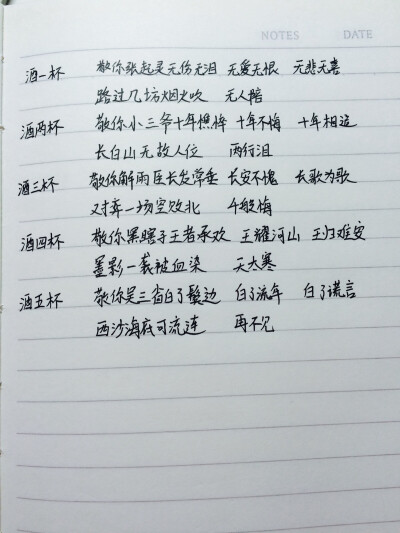 NOTES DATE
酒一杯 敬你张起灵无伤无泪 无爱无恨 无悲无喜
路过几坊烟火吹 无人陪
酒两杯 敬你小三爷十年憔悴 十年不悔 十年相迎
长白山无故人位 两行泪
酒三杯 敬你解雨臣长发常垂 长安不愧 长歌为歌
对弈一场空败北 千般悔
酒四杯 敬你黑瞎子王者承欢 王耀河山 王归难安
墨影一袭被血染 天大寒
酒五杯 敬你吴三省白了鬓边 白了流年 白了谎言
西沙海底可流连 再不见